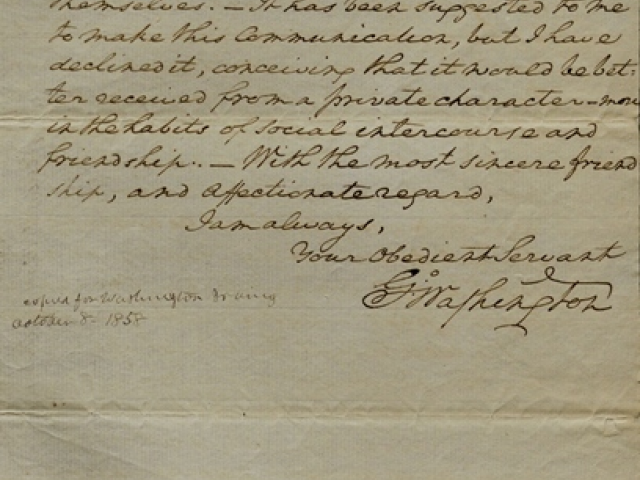 themselves. — It has been suggested to me
to make this Communication, but I have
declined it, conceiving that it would be bet-
ter received from a private character – more
in the habits of social intercourse and
friendship. — With the most sincere friend
ship, and Affectionate regard,
I am always,
Your Obedient Servant
Go: Washington
copied for Washington Irving
October 8 - 1858